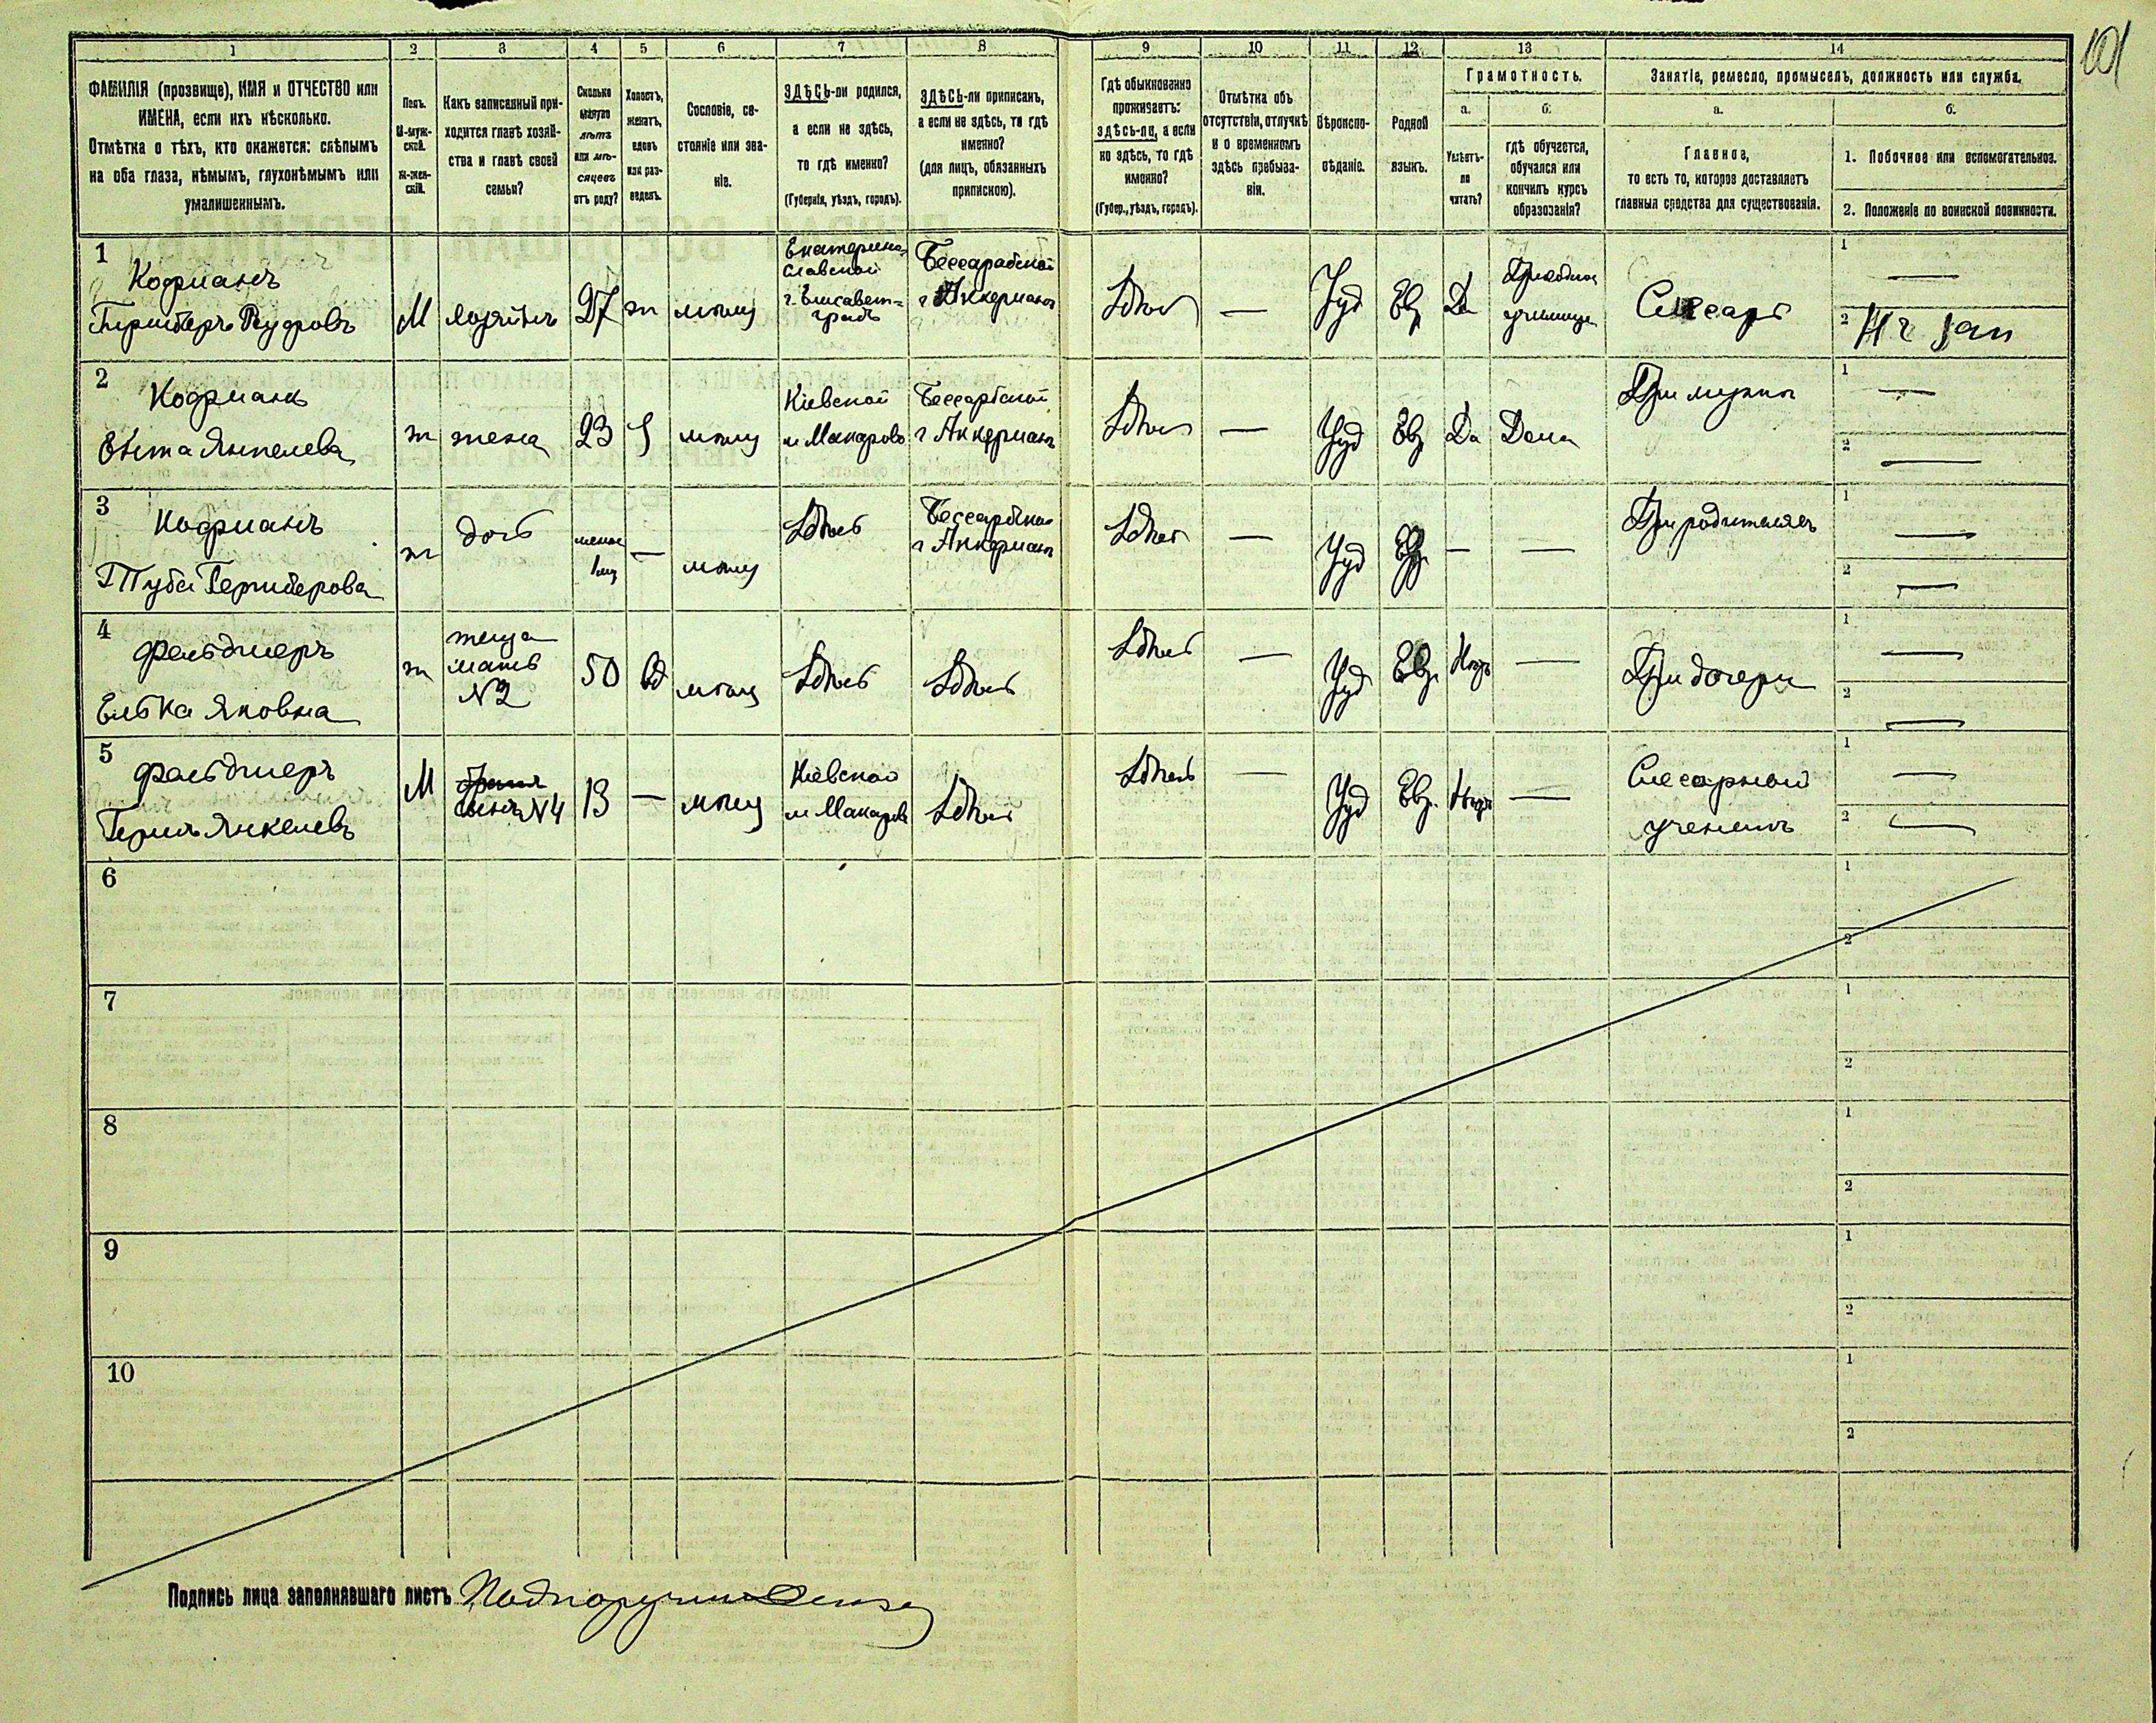 101
1 2 3 4 5 6 7 8 9 10 11 12 13 14
ФАМИЛІЯ (прозвище), ИМЯ и ОТЧЕСТВО или
ИМЕНА, если ихъ нѣсколько.
Отмѣтка о тѣхъ, кто окажется: слѣпымъ
на оба глаза, нѣмымъ, глухонѣмымъ или
умалишеннымъ.
Полъ.
М-муж-
ской.
Ж-жен-
скій.
Какъ записанный при-
ходится главѣ хозяй-
ства и главѣ своей
семьи?
Сколько
минуло
лѣтъ
или мѣ-
сяцевъ
отъ роду?
Холостъ,
женатъ,
вдовъ
или раз-
веденъ.
Сословіе, со-
стояніе или зва-
ніе.
ЗДѢСЬ-ли родился,
а если не здѣсь,
то гдѣ именно?
(Губернія, уѣздъ, городъ).
ЗДѢСЬ-ли приписанъ,
а если не здѣсь, то гдѣ
именно?
(для лицъ, обязанныхъ
припискою).
Гдѣ обыкновенно
проживаетъ:
здѣсь-ли, а если
не здѣсь, то гдѣ
именно?
(Губер., уѣздъ, городъ).
Отмѣтка объ
отсутствіи, отлучкѣ
и о временномъ
здѣсь пребыва-
ніи.
Вѣроиспо-
вѣданіе.
Родной
языкъ.
Грамотность.
а.
Умѣетъ-
ли
читать?
б.
гдѣ обучается,
обучался или
кончилъ курсъ
образованія?
Занятіе, ремесло, промыселъ, должность или служба.
а.
Главное,
то есть то, которое доставляетъ
главныя средства для существованія.
б.
1. Побочное или вспомогательное.
2. Положеніе по воинской повинности.
1
Кофманъ
М
хозяинъ
27
ж
мѣщ
Екатерино-
славской
г. Елисавет-
градъ
Бессарабской
г Аккерманъ
Здѣсь
—
Іуд
Евр
Да
училище
Слесарь
1 —
2
2
Кофманъ
ж
жена
23
З
мѣщ
Кіевской
м Макарово
г Аккерманъ
Здѣсь
—
Іуд
Евр
Да
Дома
При мужѣ
1 —
2 —
3
Кофманъ
ж
дочь
менѣе
—
мѣщ
Здѣсь
г Аккерманъ
Здѣсь
—
Іуд
Евр
—
—
При родителяхъ
1 —
2 —
4
Фельдшеръ
Елька Яковна
ж
теща
мать
№2
50
вд
мѣщ
Здѣсь
Здѣсь
Здѣсь
—
Іуд
Евр.
Нѣтъ
—
При дочери
1 —
2 —
5
Фельдшеръ
Гершъ Янкелевъ
М
сынъ №4
13
—
мѣщ
Кіевской
м Макаровъ
Здѣсь
Здѣсь
—
Іуд
Евр.
Нѣтъ
—
Слесарный
ученикъ
1 —
2 —
6
1
2
7
1
2
8
1
2
9
1
2
10
1
2
Подпись лица заполнявшаго листъ